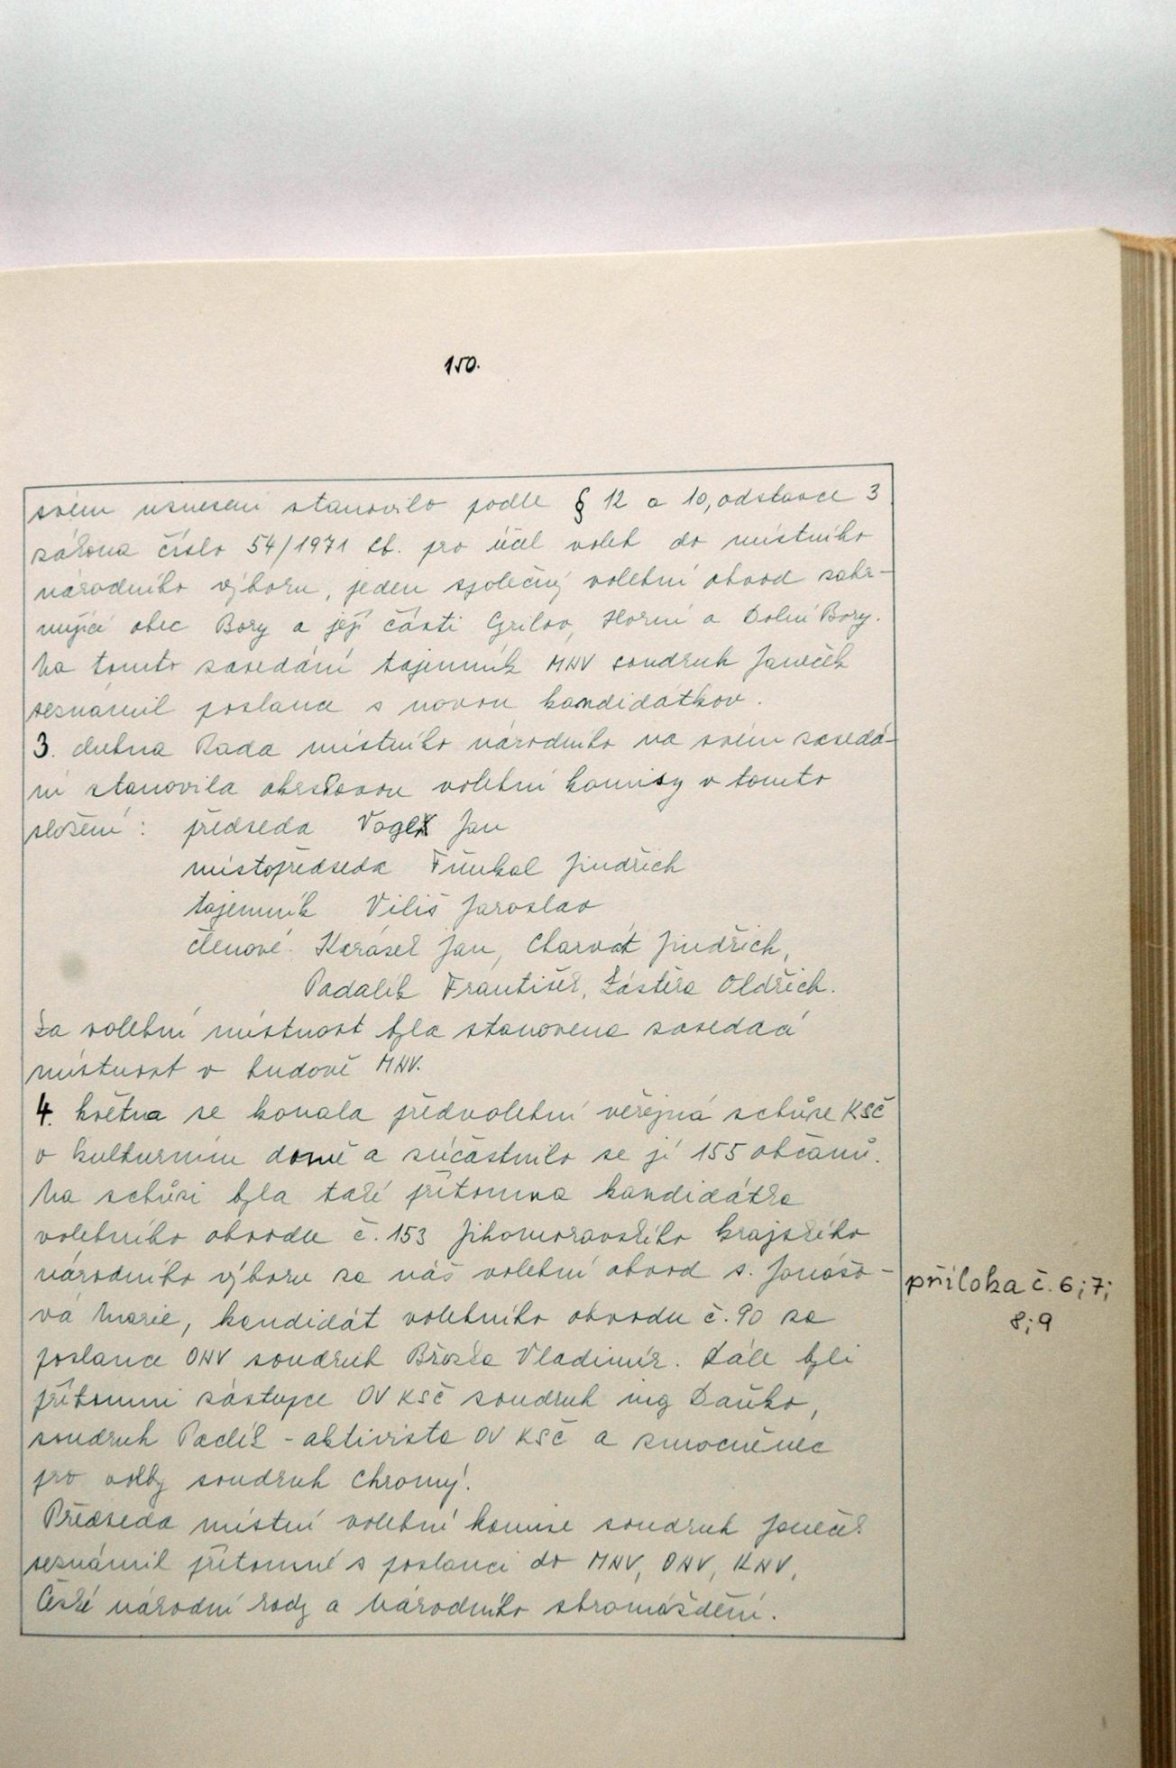 150.
svém usnesení stanovilo podle § 12 a 10, odstavce 3
zákona číslo 54/1971 Sb. pro účel voleb do místního
národního výboru, jeden společný volební obvod zahr-
nující obec Bory a její části Grilov, Horní a Dolní Bory.
Na tomto zasedání tajemník MNV soudruh Janeček
seznámil poslance s novou kandidátkou.
3. dubna Rada místního národního na svém zasedá-
ní stanovila okrskovou volební komisy v tomto
složení: předseda Vogel Jan
místopředseda Trnkal Jindřich
tajemník Viliš Jaroslav
členové: Karásek Jan, Charvát Jindřich,
Padalík František, Zástěra Oldřich.
Za volební místnost byla stanovena zasedací
místnost v budově MNV.
4. května se konala předvolební veřejná schůze KSČ
v kulturním domě a zúčastnilo se jí 155 občanů.
Na schůzi byla také přítomna kandidátka
volebního obvodu č. 153 Jihomoravského krajského
národního výboru za náš volební obvod s. Janášo-
vá Marie, kandidát volebního obvodu č. 90 za
poslance ONV soudruh Brožka Vladimír. Dále byli
přítomni zástupce OV KSČ soudruh ing Daňko,
soudruh Padík - aktivista OV KSČ a zmocněnec
pro volby soudruh Chromý.
Předseda místní volební komise soudruh Janeček
seznámil přítomné s poslanci do MNV, ONV, KNV,
České národní rady a Národního shromáždění.
příloha č. 6; 7;
8; 9